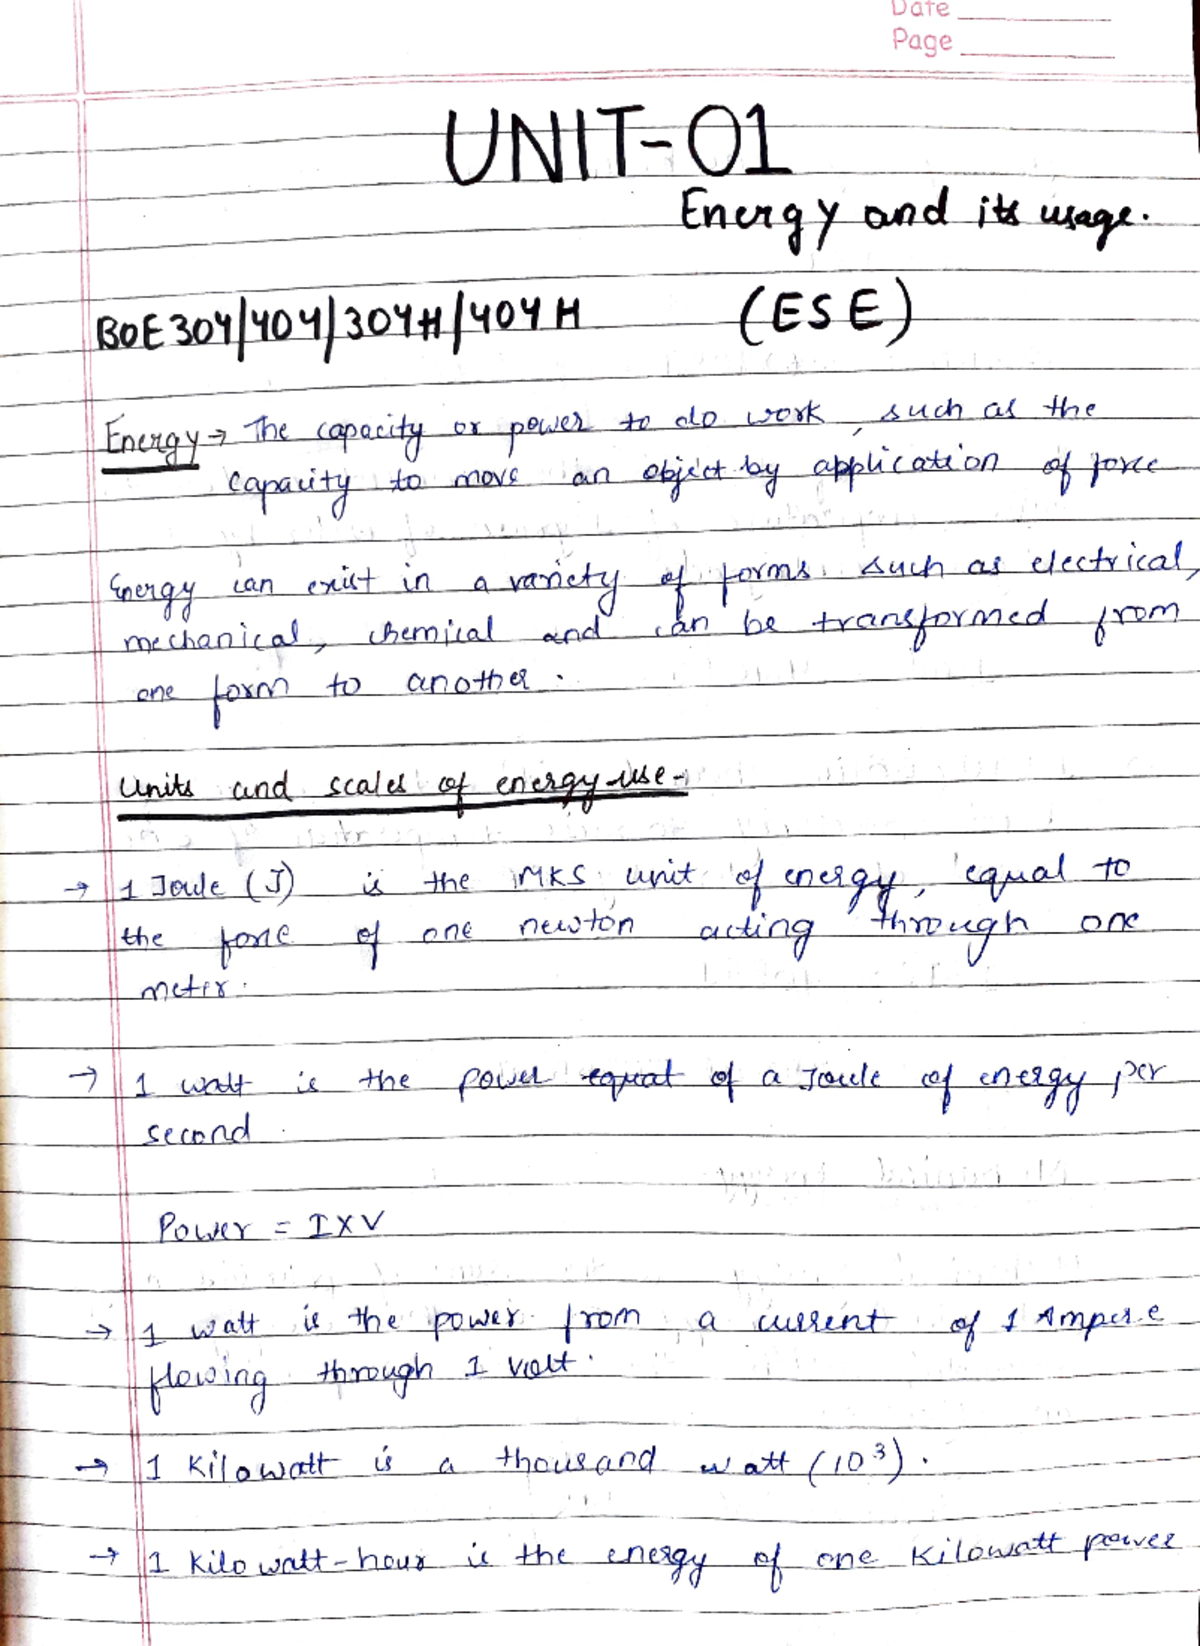 Date
Page
UNIT-01
Energy and its usage.
BOE304/404/304H/404H (ESE)
Energy → The capacity or power to do work, such as the
capacity to move an object by application of force
Energy can exist in a variety of forms such as electrical,
mechanical, chemical and can be transformed from
one form to another.
Units and scales of energy use-
→ 1 Joule (J) is the MKS unit of energy, equal to
the force of one newton acting through one
meter.
→ 1 watt is the power equat of a Joule of energy per
second
Power = I X V
→ 1 watt is the power from a current of 1 Ampere
flowing through 1 volt.
→ 1 Kilowatt is a thousand watt (10³).
→ 1 Kilowatt-hour is the energy of one Kilowatt power